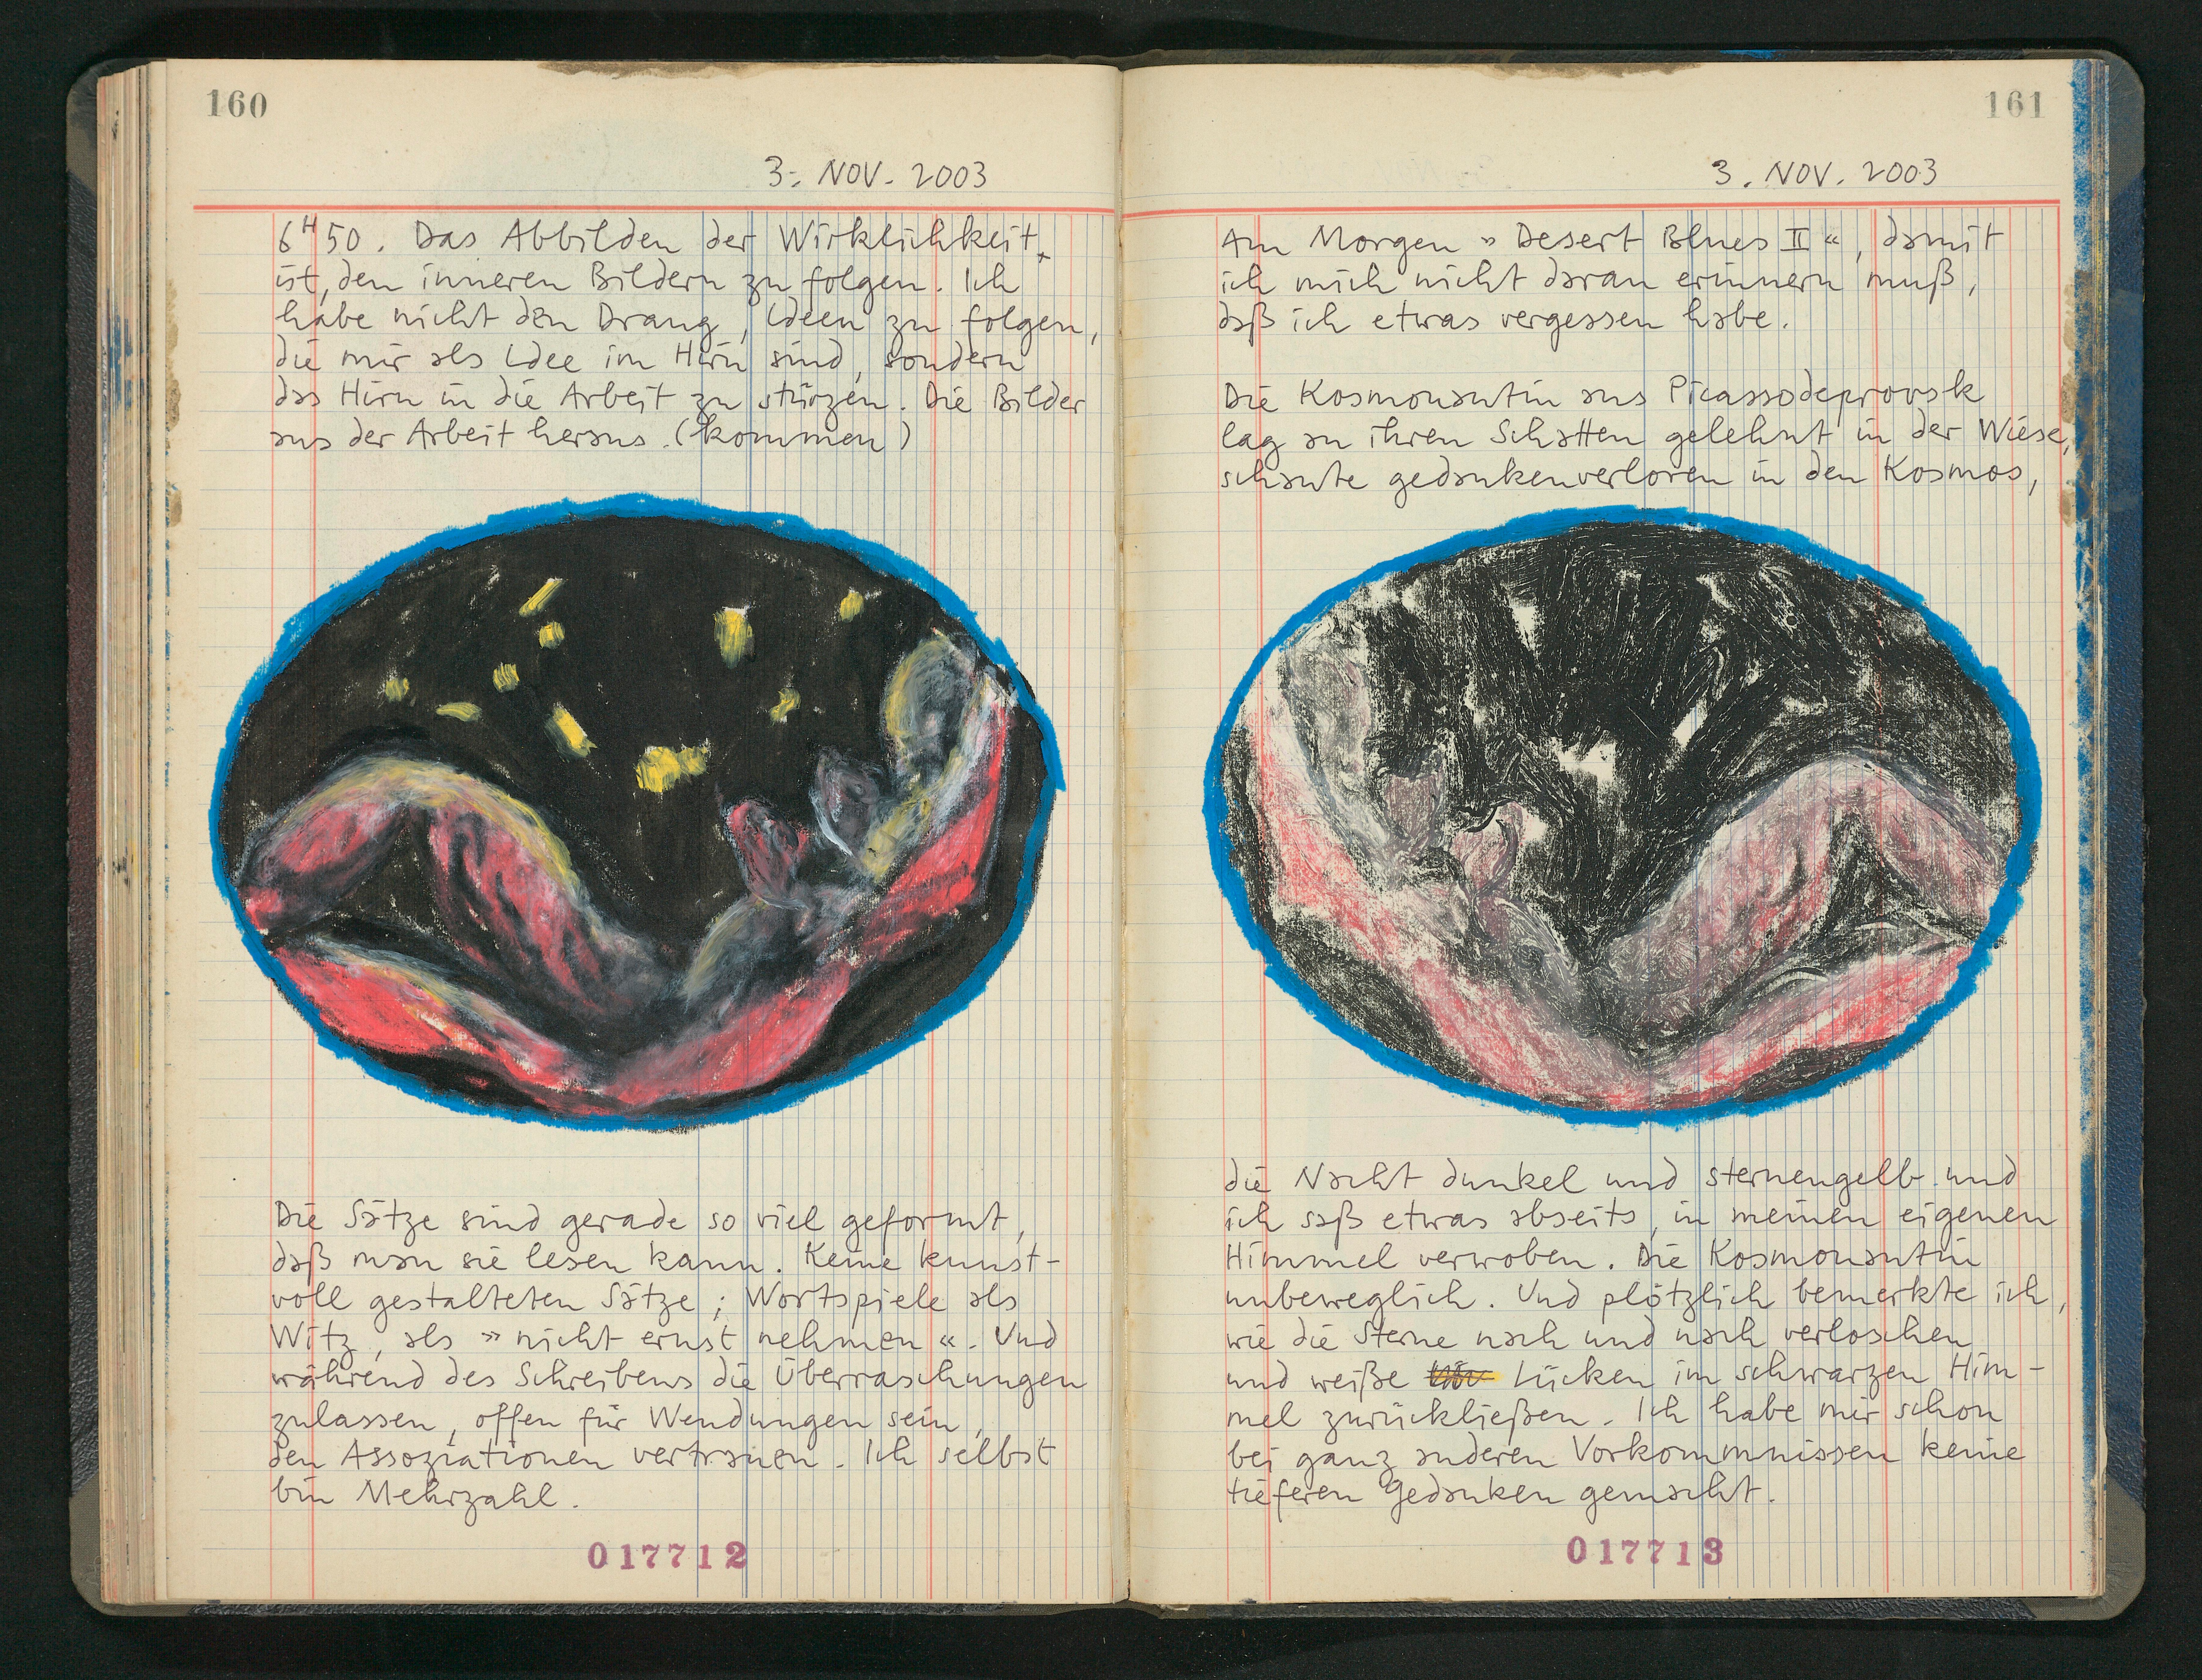 160
3. NOV. 2003
6H50. Das Abbilden der Wirklichkeit,
ist, den inneren Bildern zu folgen. Ich
habe nicht den Drang, Ideen zu folgen,
die mir als Idee im Hirn sind, sondern
das Hirn in die Arbeit zu stürzen. Die Bilder
aus der Arbeit heraus. (kommen)
Die Sätze sind gerade so viel geformt,
daß man sie lesen kann. Keine kunst-
voll gestalteten Sätze; Wortspiele als
Witz, als »nicht ernst nehmen«. Und
während des Schreibens die Überraschungen
zulassen, offen für Wendungen sein,
den Assoziationen vertrauen. Ich selbst
bin Mehrzahl.
017712
161
3. NOV. 2003
Am Morgen »Desert Blues II«, damit
ich mich nicht daran erinnern muß,
daß ich etwas vergessen habe.
Die Kosmonautin aus Picassodeprovsk
lag an ihren Schatten gelehnt in der Wiese,
schaute gedankenverloren in den Kosmos,
die Nacht dunkel und sternengelb und
ich saß etwas abseits, in meinen eigenen
Himmel verwoben. Die Kosmonautin
unbeweglich. Und plötzlich bemerkte ich,
wie die Sterne nach und nach verloschen
und weiße Lücken im schwarzen Him-
mel zurückließen. Ich habe mir schon
bei ganz anderen Vorkommnissen keine
tieferen Gedanken gemacht.
017713